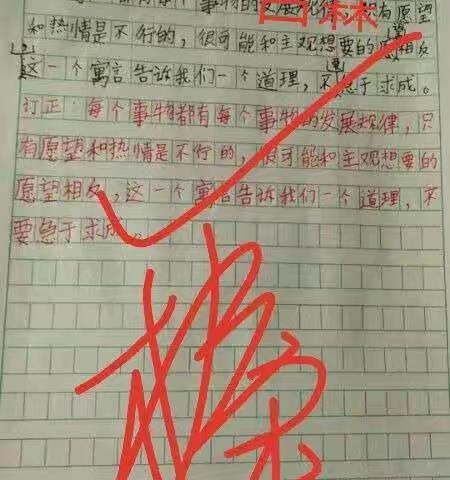 事物的发展规律 有愿望
和热情是不行的，很可能和主观想要的相反
这一个寓言告诉我们一个道理，不急于求成。
订正：每个事物都有每个事物的发展规律，只
有愿望和热情是不行的，很可能和主观想要的
愿望相反，这一个寓言告诉我们一个道理，不
要急于求成。